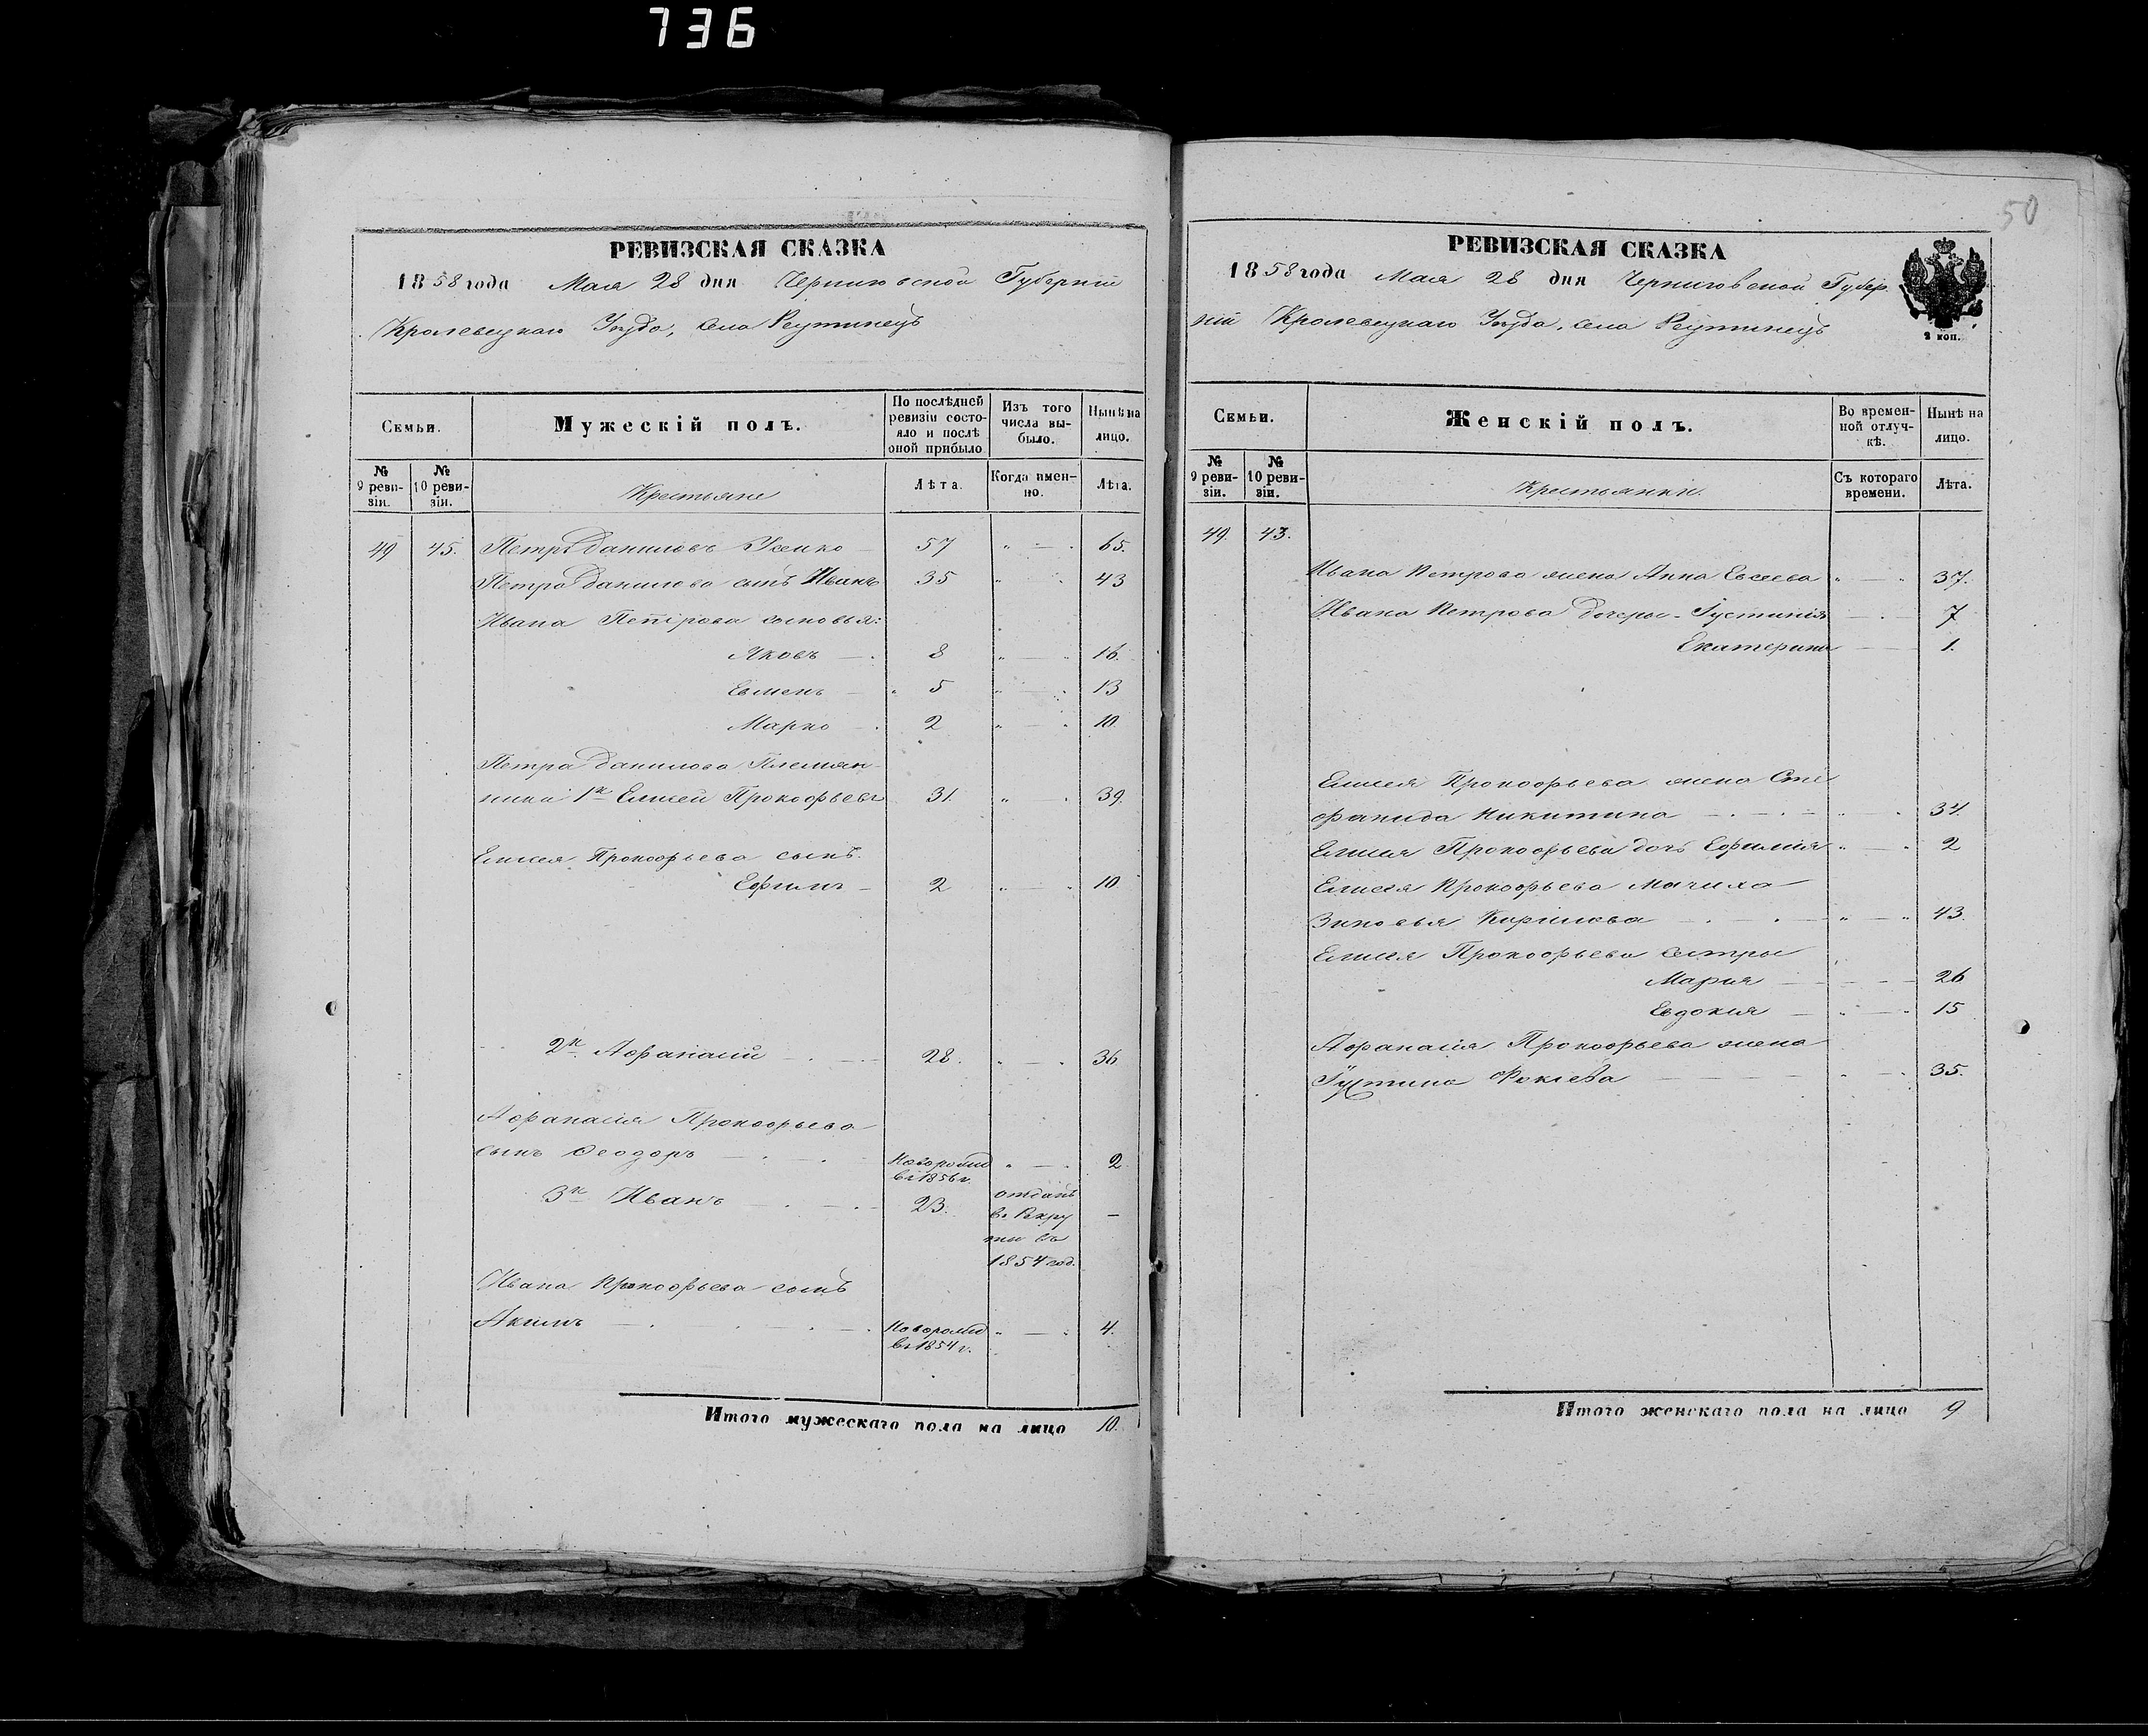 736
50
РЕВИЗСКАЯ СКАЗКА
1858 года Мая 28 дня Черниговской Губерніи
Кролевецкаго Уѣзда, села Реутинецъ
Семьи.
Мужескій полъ.
По послѣдней ревизіи состояло и послѣ оной прибыло
Изъ того числа выбыло.
Нынѣ на лицо.
№ 9 ревизіи.
№ 10 ревизіи.
Крестьяне
Лѣта.
Когда именно.
Лѣта.
49 45. Петръ Даниловъ 57 " — " 65.
Петра Данилова сынъ Иванъ 35 " " 43
Ивана Петрова сыновья:
Яковъ — 8 " — " 16.
Евменъ — 5 " — " 13
Марко — 2 " — " 10
Петра Данилова Племян-
ники 1й Елисей Прокофьевъ 31. " — " 39.
Елисея Прокофьева сынъ.
Ефимъ — 2 " — " 10
2й Афанасій — 28. " — " 36
Афанасія Прокофьева
сынъ Феодоръ — Новорожд въ 1856 г. " — " 2
3й Иванъ — 23. отданъ въ Рекруты въ 1854 год. —
Ивана Прокофьева сынъ
Акимъ — Новорожд въ 1854 г. " — " 4.
Итого мужескаго пола на лицо 10.
РЕВИЗСКАЯ СКАЗКА
1858 года Мая 28 дня Черниговской Губер
ніи Кролевецкаго Уѣзда, села Реутинецъ
2 коп.
Семьи.
Женскій полъ.
Во временной отлучкѣ.
Нынѣ на лицо.
№ 9 ревизіи.
№ 10 ревизіи.
Крестьянки.
Съ котораго времени.
Лѣта.
49. 43.
Ивана Петрова жена Анна Евсеева " — " 37.
Ивана Петрова дочери - Іустинія — 7
Екатерина — 1.
Елисея Прокофьева жена Сте
фанида Никитина — " " 34.
Елисея Прокофьева дочь Ефимія " — " 2
Елисея Прокофьева Мачиха
Зиновья Кирилова — " — " 43.
Елисея Прокофьева сестры
Мария — 26
Евдокия — " — " 15
Афанасія Прокофьева жена
Іустина Фокіева — " — " 35.
Итого женскаго пола на лицо 9